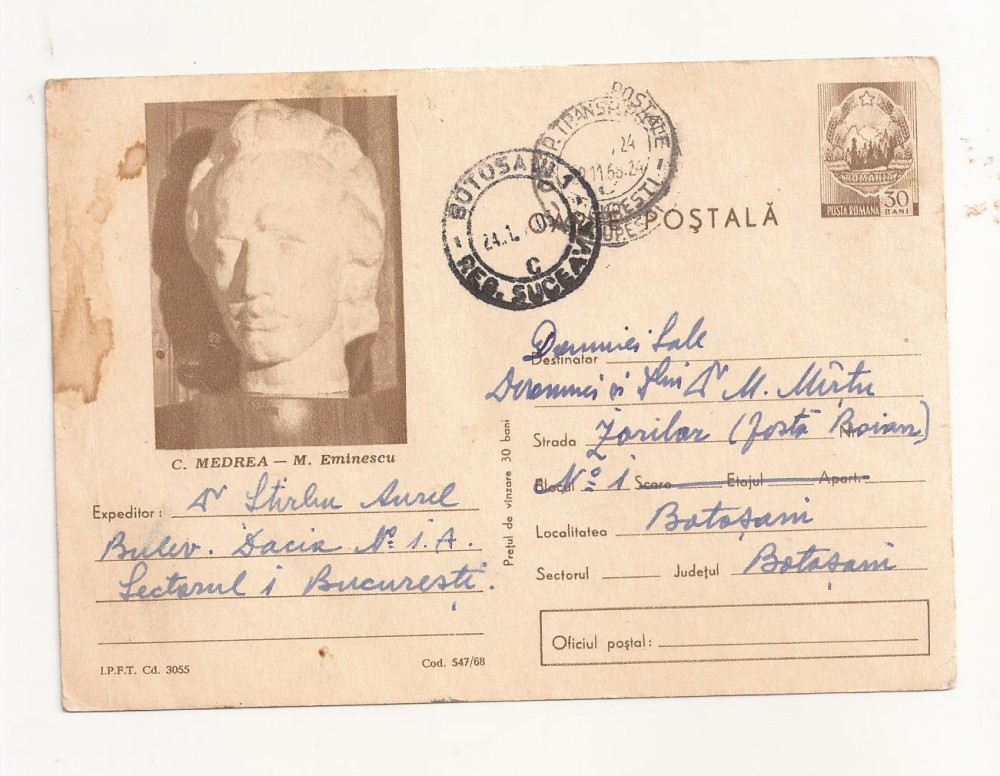 POȘTALE
P. TRANSP.
24
11.68.24
BUCUREȘTI
BOTOȘANI 1
24.1.
C
REG. SUCEAVA
CARTE POȘTALĂ
ROMANIA
POSTA ROMANA
30
BANI
C. MEDREA – M. Eminescu
Expeditor: Dr Știrbu Aurel
Bulev. Dacia No. 1. A.
Sectorul 1 București.
I.P.F.T. Cd. 3055
Cod. 547/68
Prețul de vînzare 30 bani
Domniei Sale
Destinatar
Doamnei și Dlui Dr M. Mîrțu
Strada Zorilor (fostă Roian) Nr.
Blocul No 1 Scara Etajul Apart.
Localitatea Botoșani
Sectorul Județul Botoșani
Oficiul poștal: